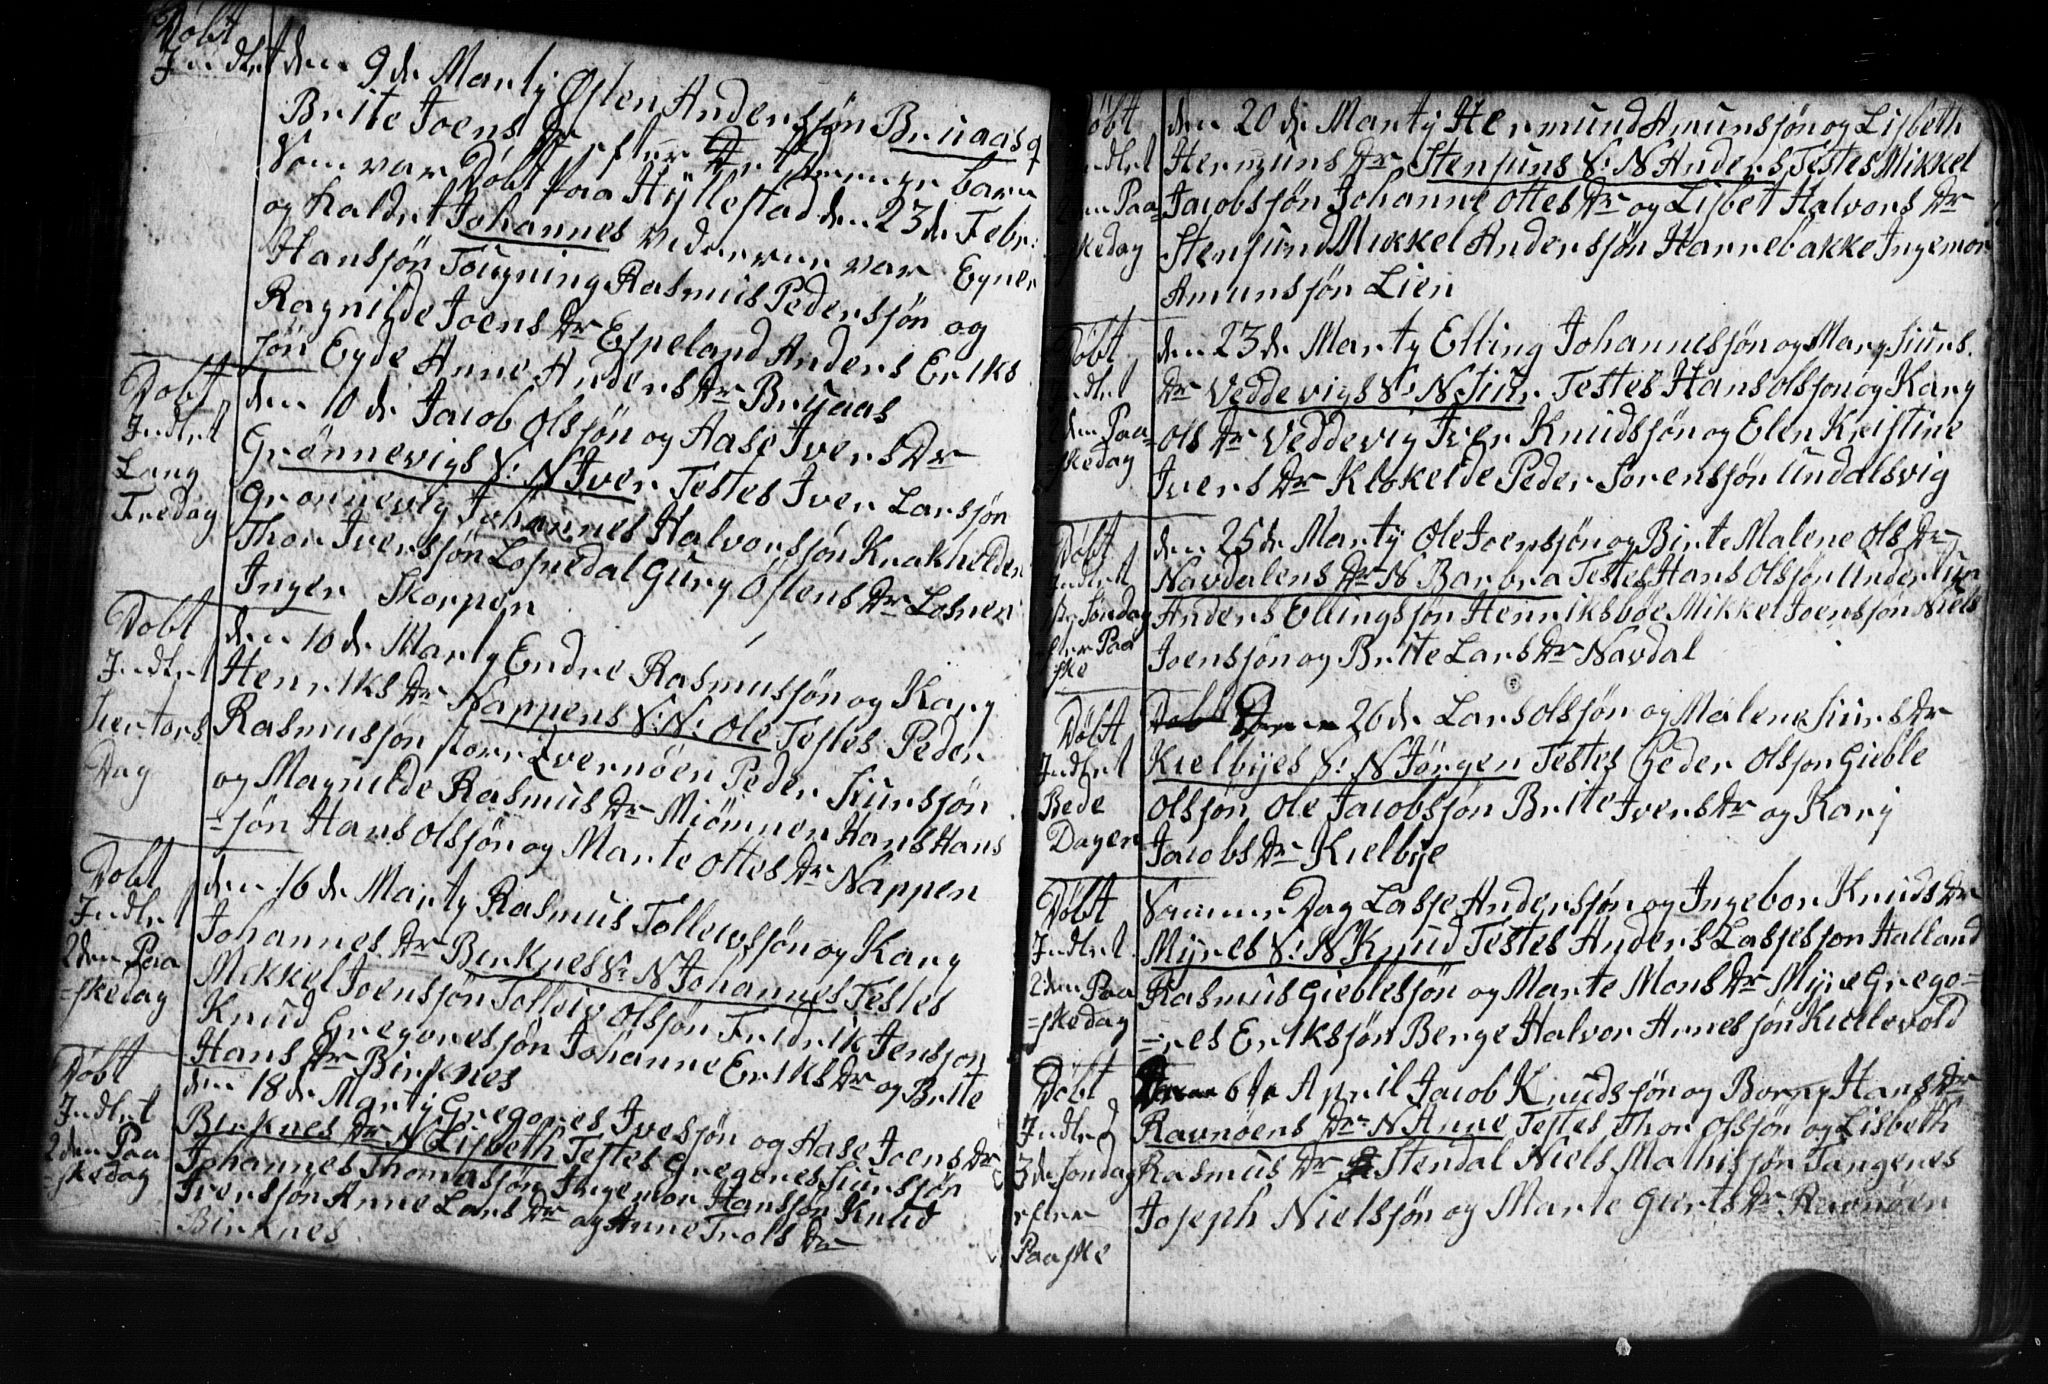 Døbt
Indlet
den 9 de Marty Østen Andersøn Bruaas og
Brite Joens Dr
Som var Døbt paa Hyllestad den 23 de Febr:
og kaldet Johannes var Egner
Hansøn Tougning Rasmus Pedersøn og
Ragnilde Joens Dr Espeland Anders Eriks
søn Eyde Anne Anders Dr Bruaas
Døbt
Indlet
Lang
Fredag
den 10 de Jacob Olssøn og Aase Ivers Dr
Grønnevigs S: N Iver Testes Iver Larssøn
Grønnevig Johannes Halvorssøn Krakhelden
Thor Iverssøn Losnedal Gury Østens Dr Losnen
Inger Skorpen
Døbt
Indlet
Skertors
Dag
den 10 de Marty Endre Rasmussøn og Kary
Henriks Dr Nappens S: N: Ole Testes Peder
Rasmussøn storr Qvernøen Peder Siurssøn
og Magnilde Rasmus Dr Miømnen Hans Hans
=søn Hans Olssøn og Marte Ottes Dr Nappen
Døbt
Indlet
2den Paa
=skedag
den 16 de Marty Rasmus Tollewssøn og Kary
Johannes Dr Berknes S: N Johannes Testes
Mikkel Joenssøn Tolleiv Olssøn Fridrik Jenssøn
Knud Gregoressøn Johanne Eriks Dr og Brite
Hans Dr Birknes
Døbt
Indlet
2den Paa
=skedag
den 18 de Marty Gregores Ivessøn og Aase Joens Dr
Birknes Dr N Lisbeth Testes Gregores Siurssøn
Johannes Thomassøn Ingemor Hanssøn Knud
Iverssøn Anne Lars Dr og Anne Trols Dr
Birknes
Døbt
Indlet
2den Paa=
=skedag
den 20 de Marty Hermund Amunssøn og Lisbeth
Hermuns Dr Stensuns S: N Anders Testes Mikkel
Jacobssøn Johanne Ottes Dr og Lisbet Halvors Dr
Stensund Mikkel Anderssøn Harrebakke Ingemor
Amunssøn Lien
Døbt
Indlet
2den Paa=
=skedag
den 23 de Marty Elling Johannessøn og Mary Siurs
Dr Veddevigs S: N Siur Testes Hans Olssøn og Kary
Ols Dr Veddevig Iver Knudssøn og Elen Kristine
Ivers Dr Klokelde Peder Sørenssøn Undalsvig
Døbt
Indlet
Søndag
efter Paa
ske
den 25 de Marty Ole Joenssøn og Birte Malene Ols Dr
Navdalens Dr N Barbra Testes Hans Olssøn Underlien
Anders Ellingssøn Henriksbøe Mikkel Joenssøn Niels
Joenssøn og Brite Lars Dr Navdal
Døbt
Indlet
Bede
Dagen
26 de Lars Olssøn og Malene Siurs Dr
Kielbyes S: N Jørgen Testes Peder Olssøn Gieble
Olssøn Ole Jacobssøn Brite Ivers Dr og Kary
Jacobs Dr Kielbye
Døbt
Indlet
2den Paa
=skedag
Sommer Dag Lasse Anderssøn og Ingebor Knuds Dr
Myres S: N Knud Testes Anders Lassessøn Halland
Rasmus Gieblesøn og Marte Mons Dr Myre Grego=
=res Erikssøn Berge Halvor Arnessøn Kiellevold
Døbt
Indlet
3de Søndag
efter
Paaske
6 te April Jacob Knudssøn og Borny Hans Dr
Ravnøens Dr N Anne Testes Thor Olssøn og Lisbeth
Rasmus Dr Stendal Niels Mathissøn Tangenes
Joseph Nielssøn og Marte Giærts Dr Ravnøen